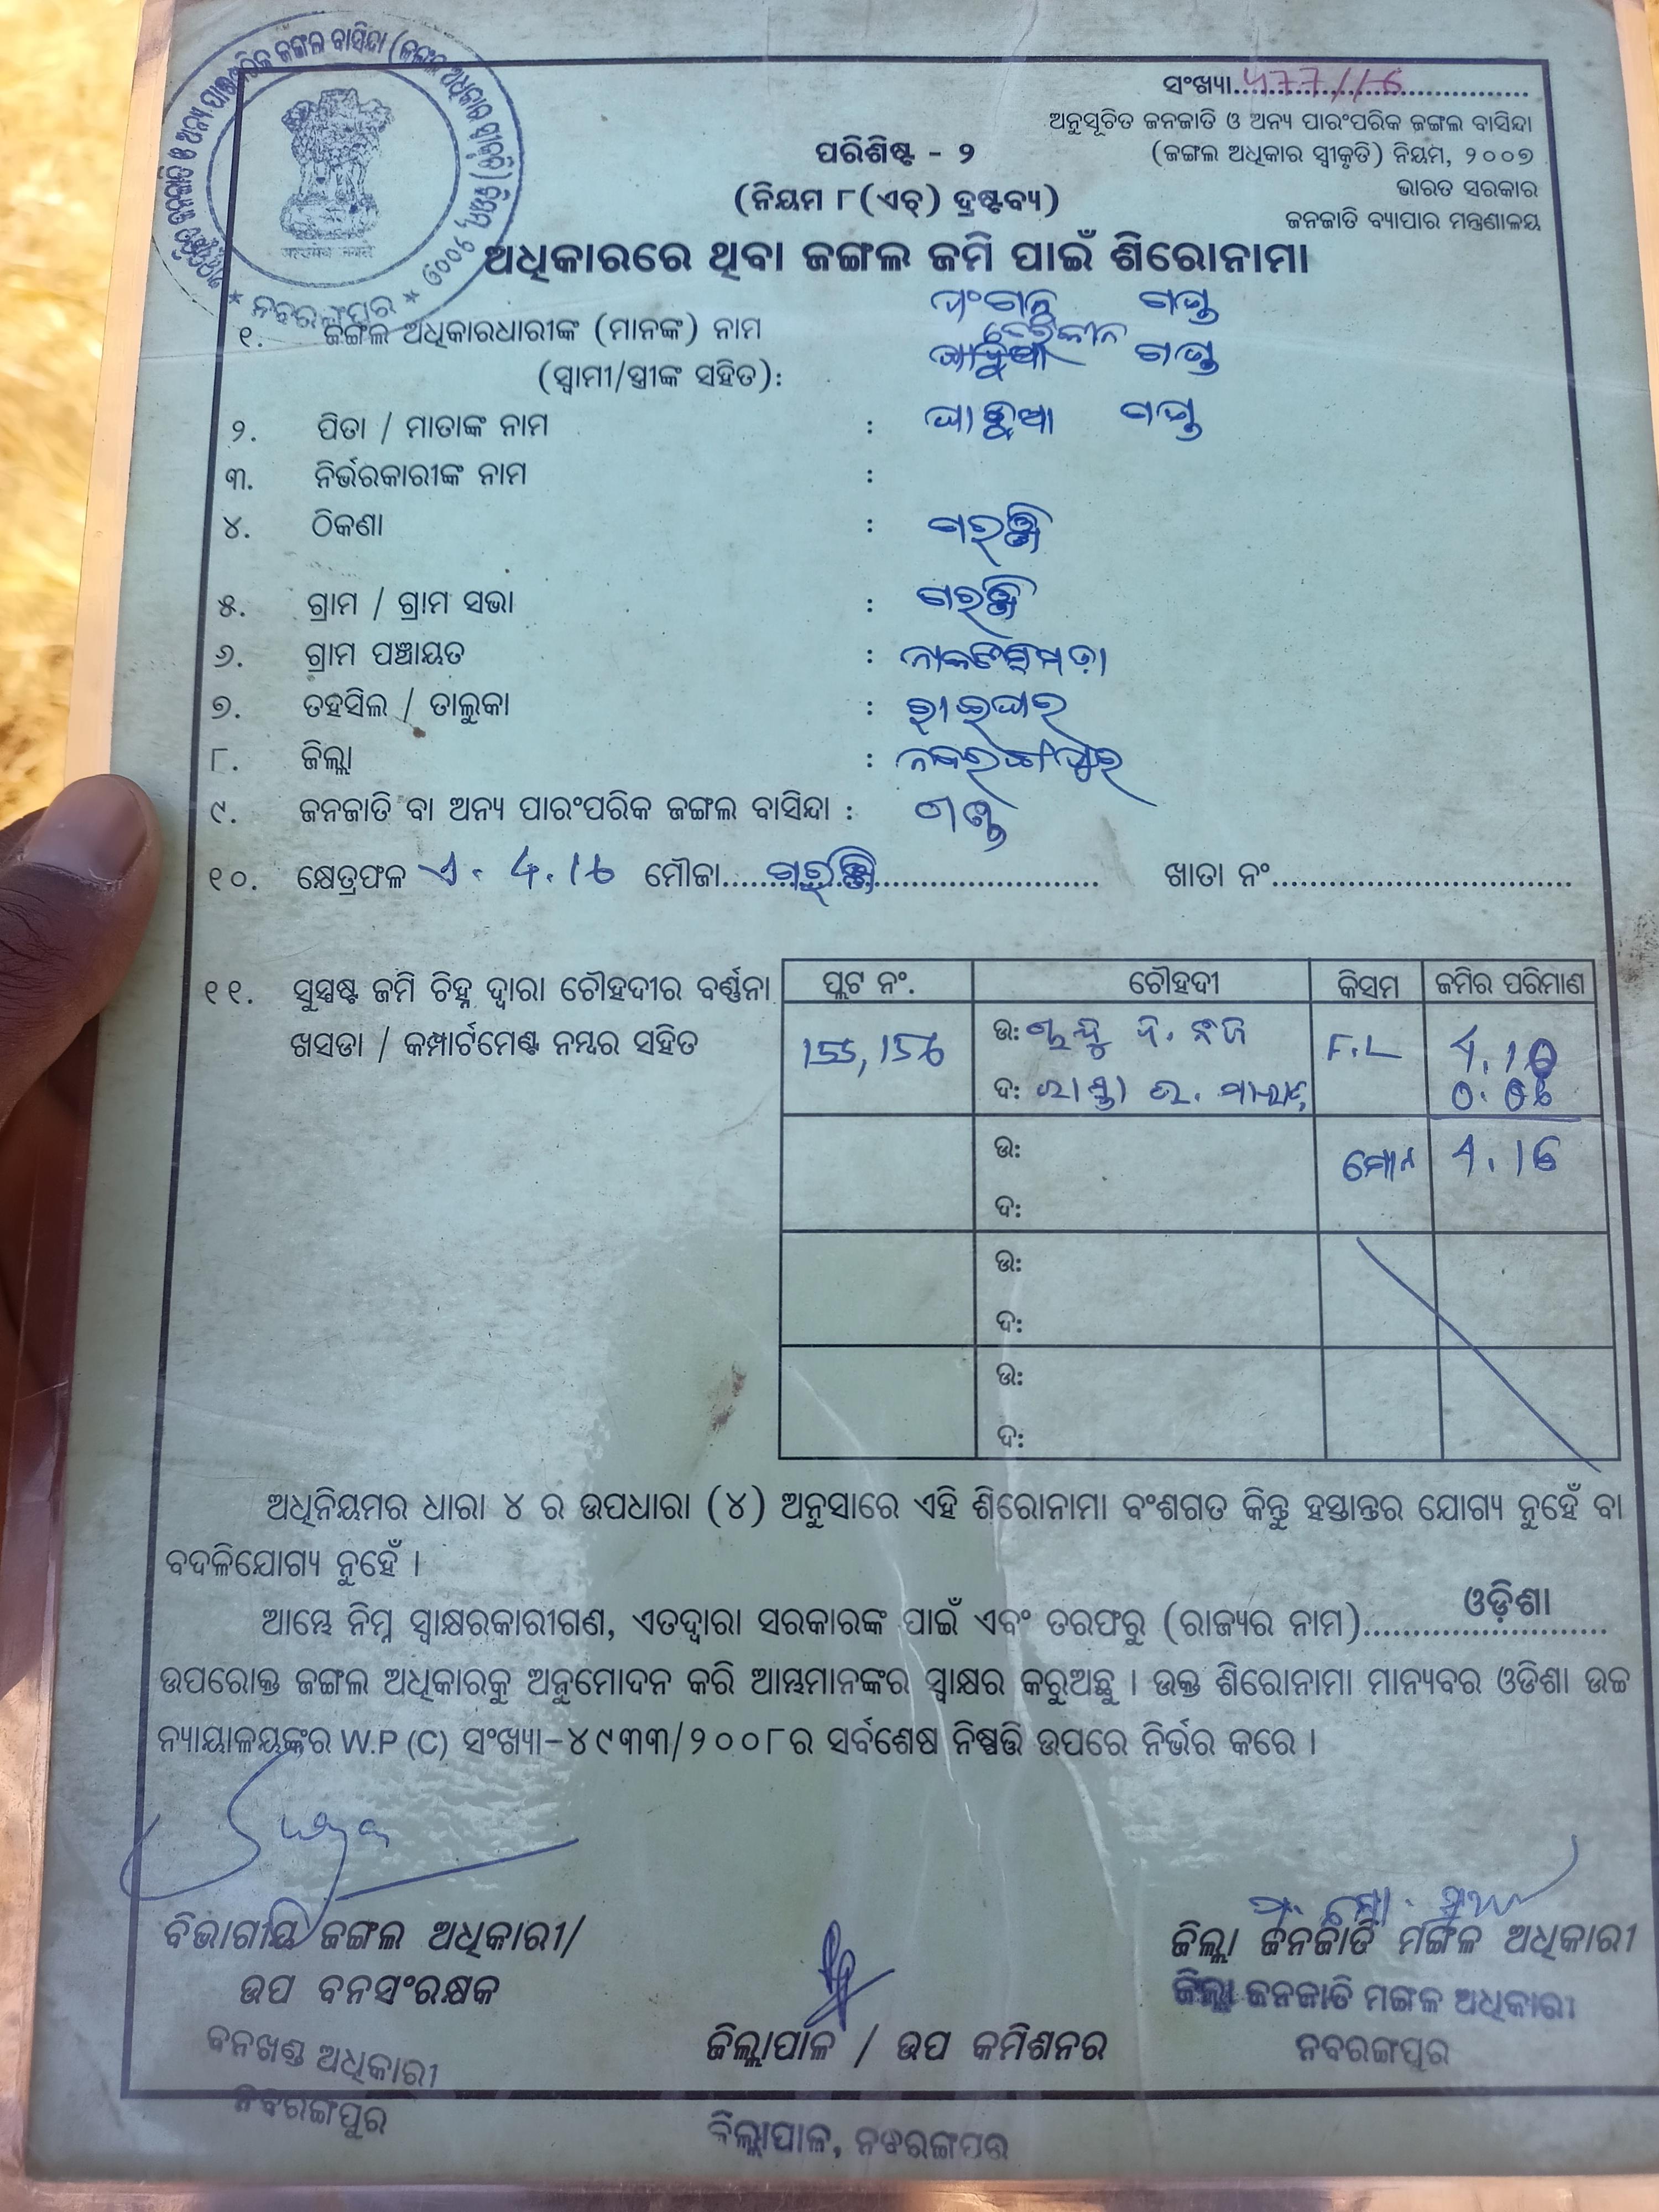 ସଂଖ୍ୟା
ଅନୁସୂଚିତ ଜନଜାତି ଓ ଅନ୍ୟ ପାରଂପରିକ ଜଙ୍ଗଲ ବାସିନ୍ଦା
(ଜଙ୍ଗଲ ଅଧିକାର ସ୍ଵୀକୃତି) ନିୟମ, ୨୦୦୭
ଭାରତ ସରକାର
ଜନଜାତି ବ୍ୟାପାର ମନ୍ତ୍ରଣାଳୟ
ପରିଶିଷ୍ଟ - ୨
(ନିୟମ ୮(ଏଚ୍) ଦ୍ରଷ୍ଟବ୍ୟ)
ଅଧିକାରରେ ଥିବା ଜଙ୍ଗଲ ଜମି ପାଇଁ ଶିରୋନାମା
ନବରଙ୍ଗପୁର
୧. ଜଙ୍ଗଲ ଅଧିକାରଧାରୀଙ୍କ (ମାନଙ୍କ) ନାମ
(ସ୍ୱାମୀ/ସ୍ତ୍ରୀଙ୍କ ସହିତ):
୨. ପିତା / ମାତାଙ୍କ ନାମ :
୩. ନିର୍ଭରକାରୀଙ୍କ ନାମ :
୪. ଠିକଣା :
୫. ଗ୍ରାମ / ଗ୍ରାମ ସଭା :
୬. ଗ୍ରାମ ପଞ୍ଚାୟତ :
୭. ତହସିଲ / ତାଲୁକା : ରାଇଘର
୮. ଜିଲ୍ଲା : ନବରଙ୍ଗପୁର
୯. ଜନଜାତି ବା ଅନ୍ୟ ପାରଂପରିକ ଜଙ୍ଗଲ ବାସିନ୍ଦା : ଗଣ୍ଡ
୧୦. କ୍ଷେତ୍ରଫଳ ଏ. 4.16 ମୌଜା.......... ଖାତା ନଂ..........
୧୧. ସୁସ୍ପଷ୍ଟ ଜମି ଚିହ୍ନ ଦ୍ୱାରା ଚୌହଦୀର ବର୍ଣ୍ଣନା
ଖସଡା / କମ୍ପାର୍ଟମେଣ୍ଟ ନମ୍ବର ସହିତ
ପ୍ଲଟ ନଂ. ଚୌହଦୀ କିସମ ଜମିର ପରିମାଣ
155, 156 ଉ: F.L 4.10
ଦ: ରାସ୍ତା 0.06
ଉ: ମୋଟ 4.16
ଦ:
ଉ:
ଦ:
ଉ:
ଦ:
ଅଧିନିୟମର ଧାରା ୪ ର ଉପଧାରା (୪) ଅନୁସାରେ ଏହି ଶିରୋନାମା ବଂଶଗତ କିନ୍ତୁ ହସ୍ତାନ୍ତର ଯୋଗ୍ୟ ନୁହେଁ ବା
ବଦଳିଯୋଗ୍ୟ ନୁହେଁ ।
ଆମ୍ଭେ ନିମ୍ନ ସ୍ୱାକ୍ଷରକାରୀଗଣ, ଏତଦ୍ୱାରା ସରକାରଙ୍କ ପାଇଁ ଏବଂ ତରଫରୁ (ରାଜ୍ୟର ନାମ)..........ଓଡ଼ିଶା..........
ଉପରୋକ୍ତ ଜଙ୍ଗଲ ଅଧିକାରକୁ ଅନୁମୋଦନ କରି ଆମ୍ଭମାନଙ୍କର ସ୍ୱାକ୍ଷର କରୁଅଛୁ । ଉକ୍ତ ଶିରୋନାମା ମାନ୍ୟବର ଓଡିଶା ଉଚ୍ଚ
ନ୍ୟାୟାଳୟଙ୍କର W.P (C) ସଂଖ୍ୟା-୪୯୩୩/୨୦୦୮ର ସର୍ବଶେଷ ନିଷ୍ପତ୍ତି ଉପରେ ନିର୍ଭର କରେ ।
ବିଭାଗୀୟ ଜଙ୍ଗଲ ଅଧିକାରୀ/
ଉପ ବନସଂରକ୍ଷକ
ବନଖଣ୍ଡ ଅଧିକାରୀ
ନବରଙ୍ଗପୁର
ଜିଲ୍ଲାପାଳ / ଉପ କମିଶନର
ଜିଲ୍ଲାପାଳ, ନବରଙ୍ଗପୁର
ଜିଲ୍ଲା ଜନଜାତି ମଙ୍ଗଳ ଅଧିକାରୀ
ଜିଲ୍ଲା ଜନଜାତି ମଙ୍ଗଳ ଅଧିକାରୀ
ନବରଙ୍ଗପୁର